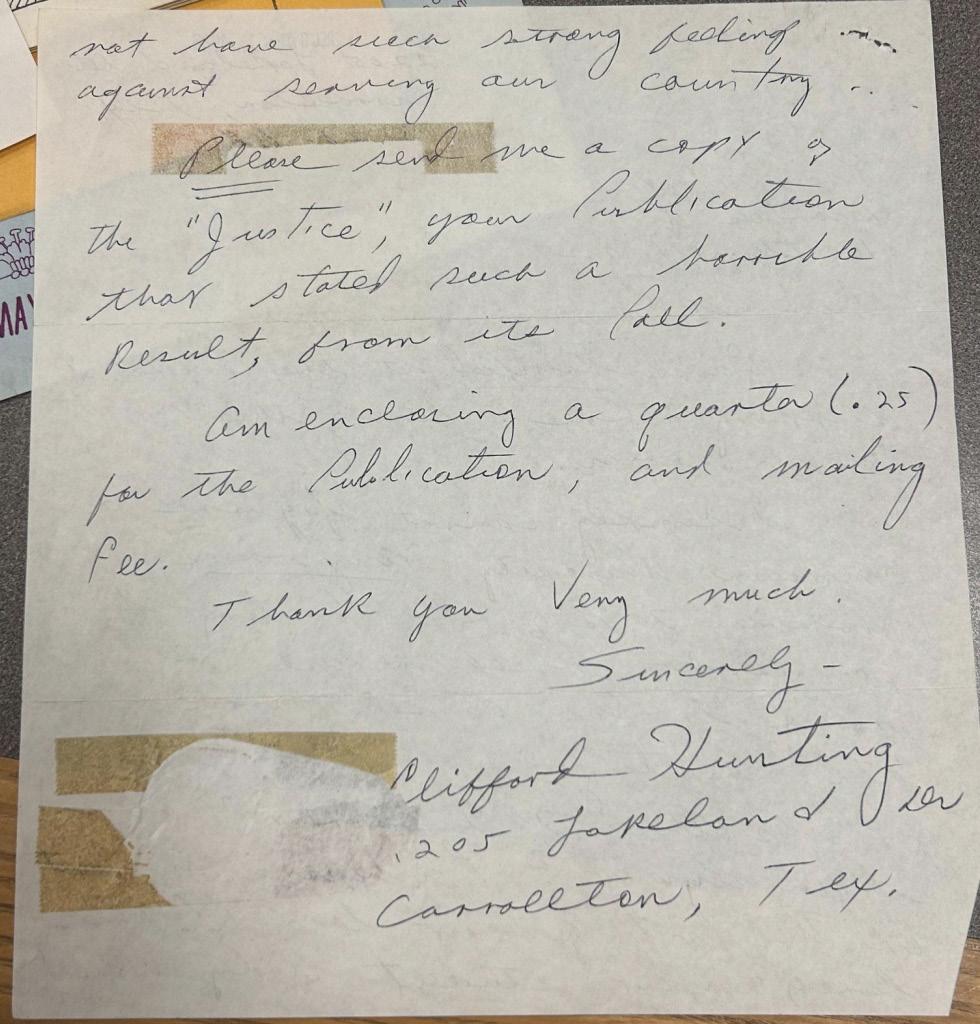 not have such strong feeling ....
against serving our country ...
Please send me a copy of
the "Justice", your Publication
that stated such a horrible
Result, from its Poll.
Am enclosing a quarter (.25)
for the Publication, and mailing
fee.
Thank you Very much.
Sincerely -
Clifford Hunting
1205 Lakeland Dr
Carrollton, Tex.
MAY